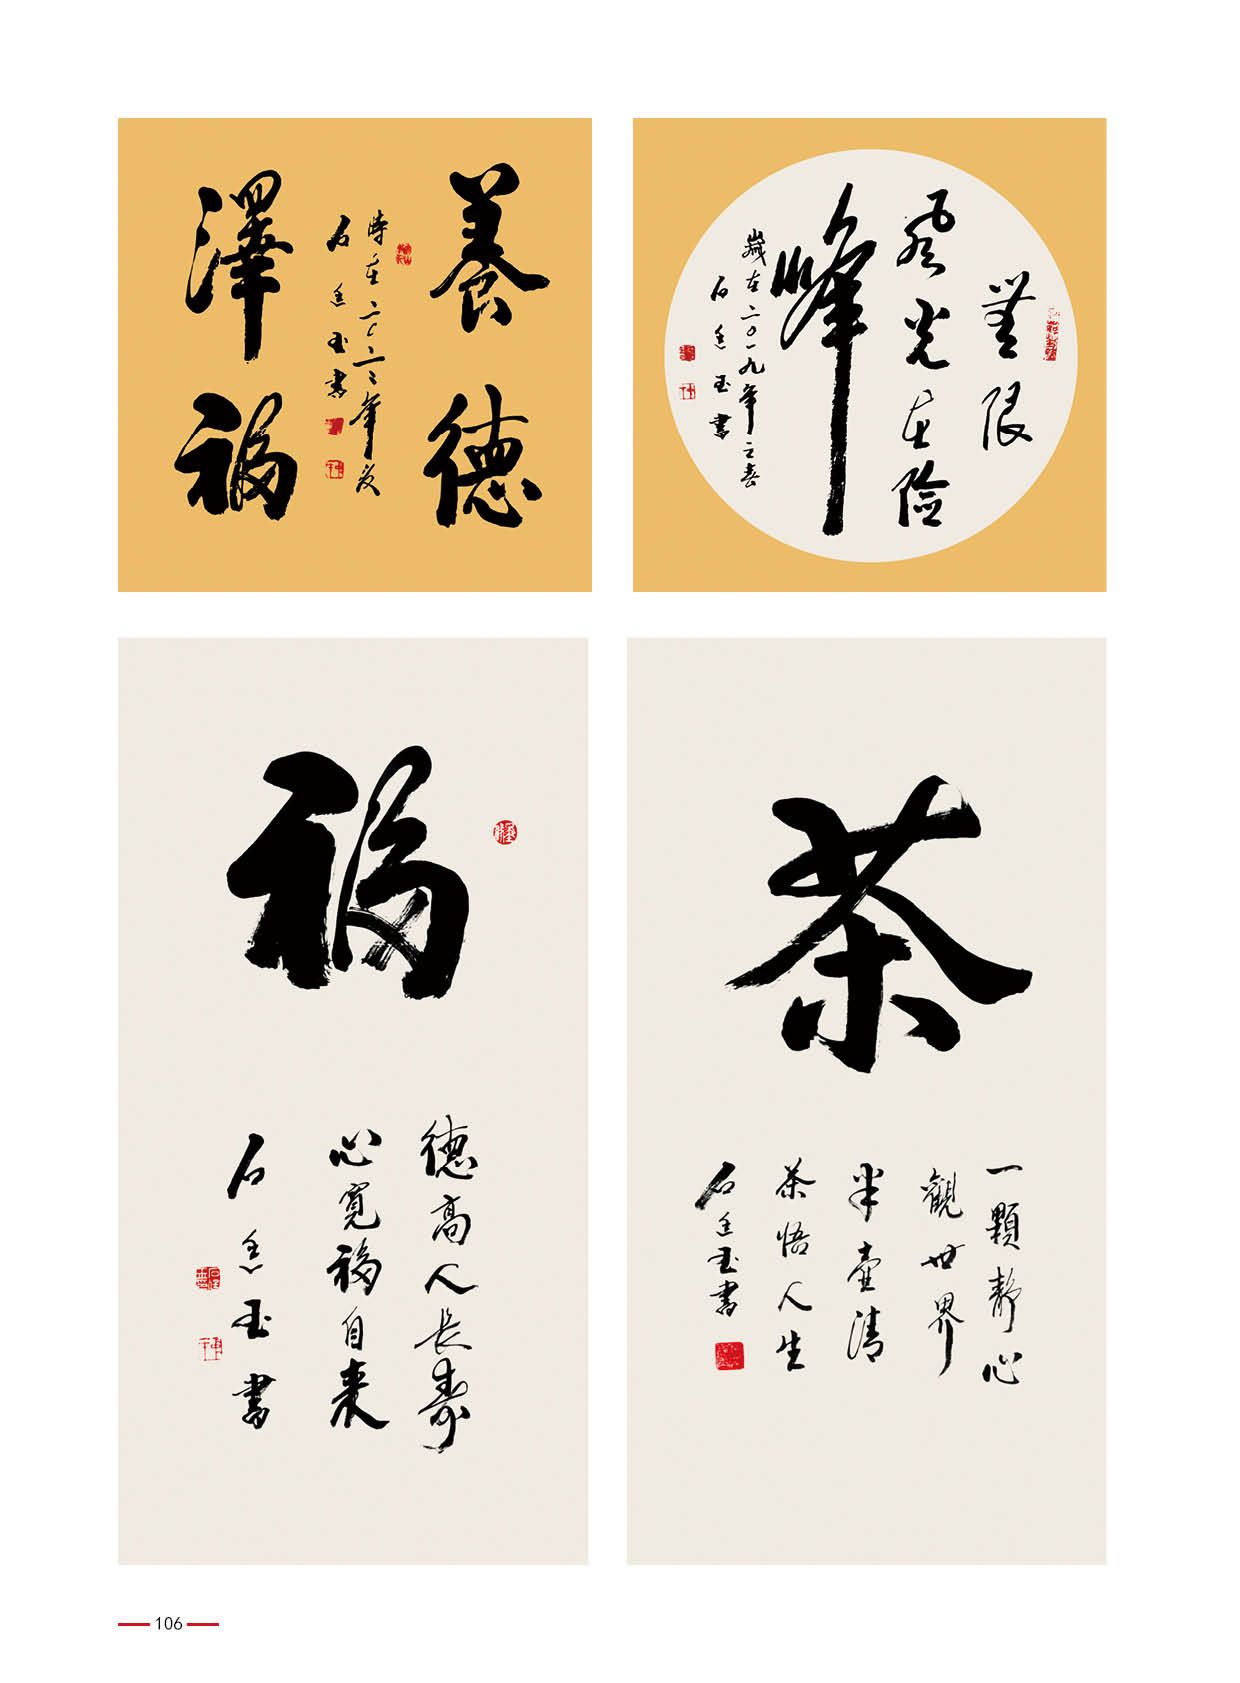 養德
時在二〇二二年夏
石玉書
澤福
無限
風光在險
峰
歲在二〇一九年之春
石玉書
福
德高人長壽
心寬福自來
石玉書
茶
一顆靜心
觀世界
半壺清
茶悟人生
石玉書
106